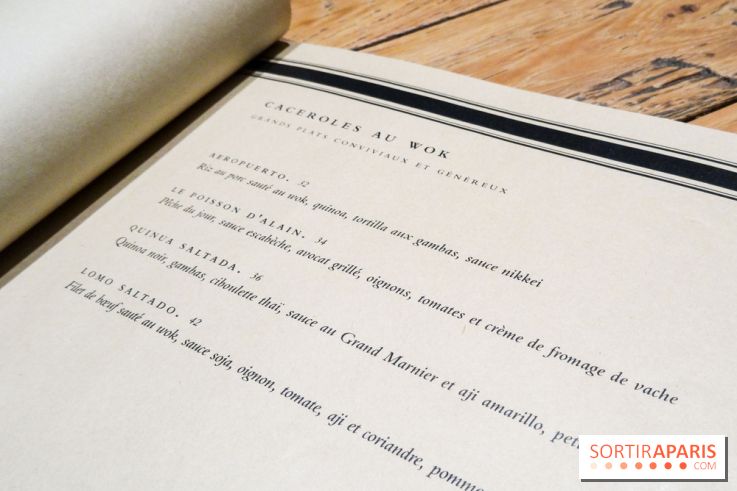 CACEROLES AU WOK
GRANDS PLATS CONVIVIAUX ET GÉNÉREUX
AEROPUERTO. 32
Riz au porc sauté au wok, quinoa, tortilla aux gambas, sauce nikkei
LE POISSON D'ALAIN. 34
Pêche du jour, sauce escabèche, avocat grillé, oignons, tomates et crème de fromage de vache
QUINUA SALTADA. 36
Quinoa noir, gambas, ciboulette thaï, sauce au Grand Marnier et aji amarillo,
LOMO SALTADO. 42
Filet de bœuf sauté au wok, sauce soja, oignon, tomate, aji et coriandre,
SORTIRAPARIS
.COM